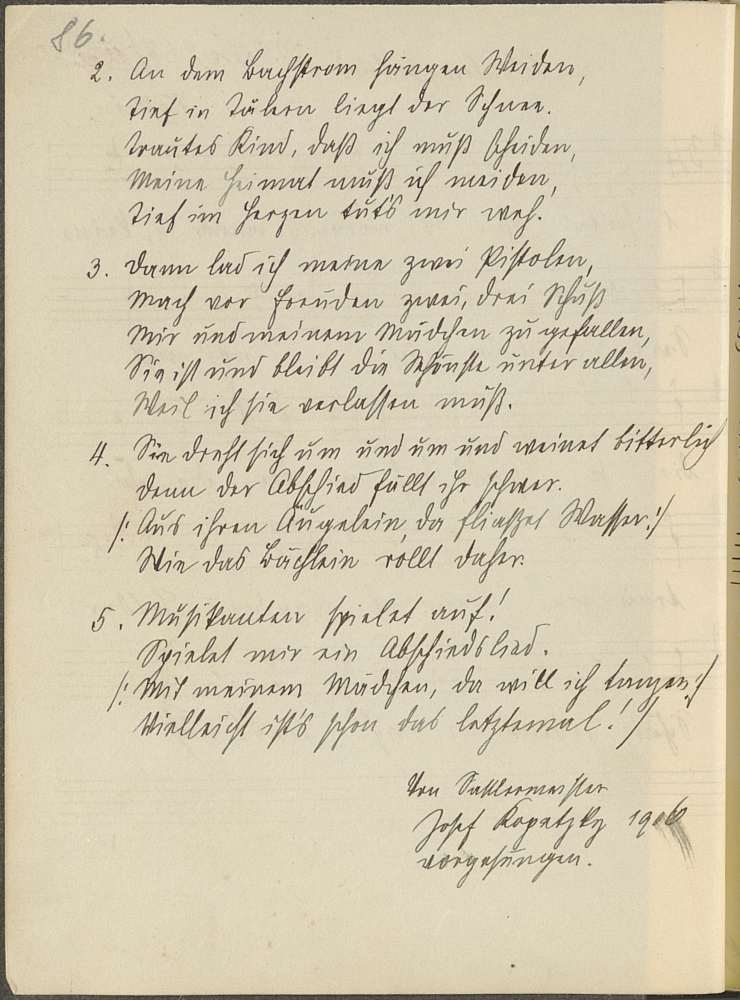 86.
2. An dem Bachstrom hängen Weiden,
Tief in Tälern liegt der Schnee.
Trautes Kind, daß ich muß scheiden,
Meine Heimat muß ich meiden,
Tief im Herzen tut's mir weh.
3. Dann lad ich meine zwei Pistolen,
Mach vor Freuden zwei, drei Schuß
Mir und meinem Mädchen zu gefallen,
Sie ist und bleibt die Schönste unter allen,
Weil ich sie verlassen muß.
4. Sie dreht sich um und um und weinet bitterlich
denn der Abschied fällt ihr schwer.
/: Aus ihren Äugelein, da fließet Wasser :/
Wie das Bächlein rollt daher.
5. Musikanten spielet auf!
Spielet mir ein Abschiedslied.
/: Mit meinem Mädchen, da will ich tanzen :/
Vielleicht ist's schon das letztemal! /
Von Sattlermeister
Josef Kopetzky 1906
vorgesungen.